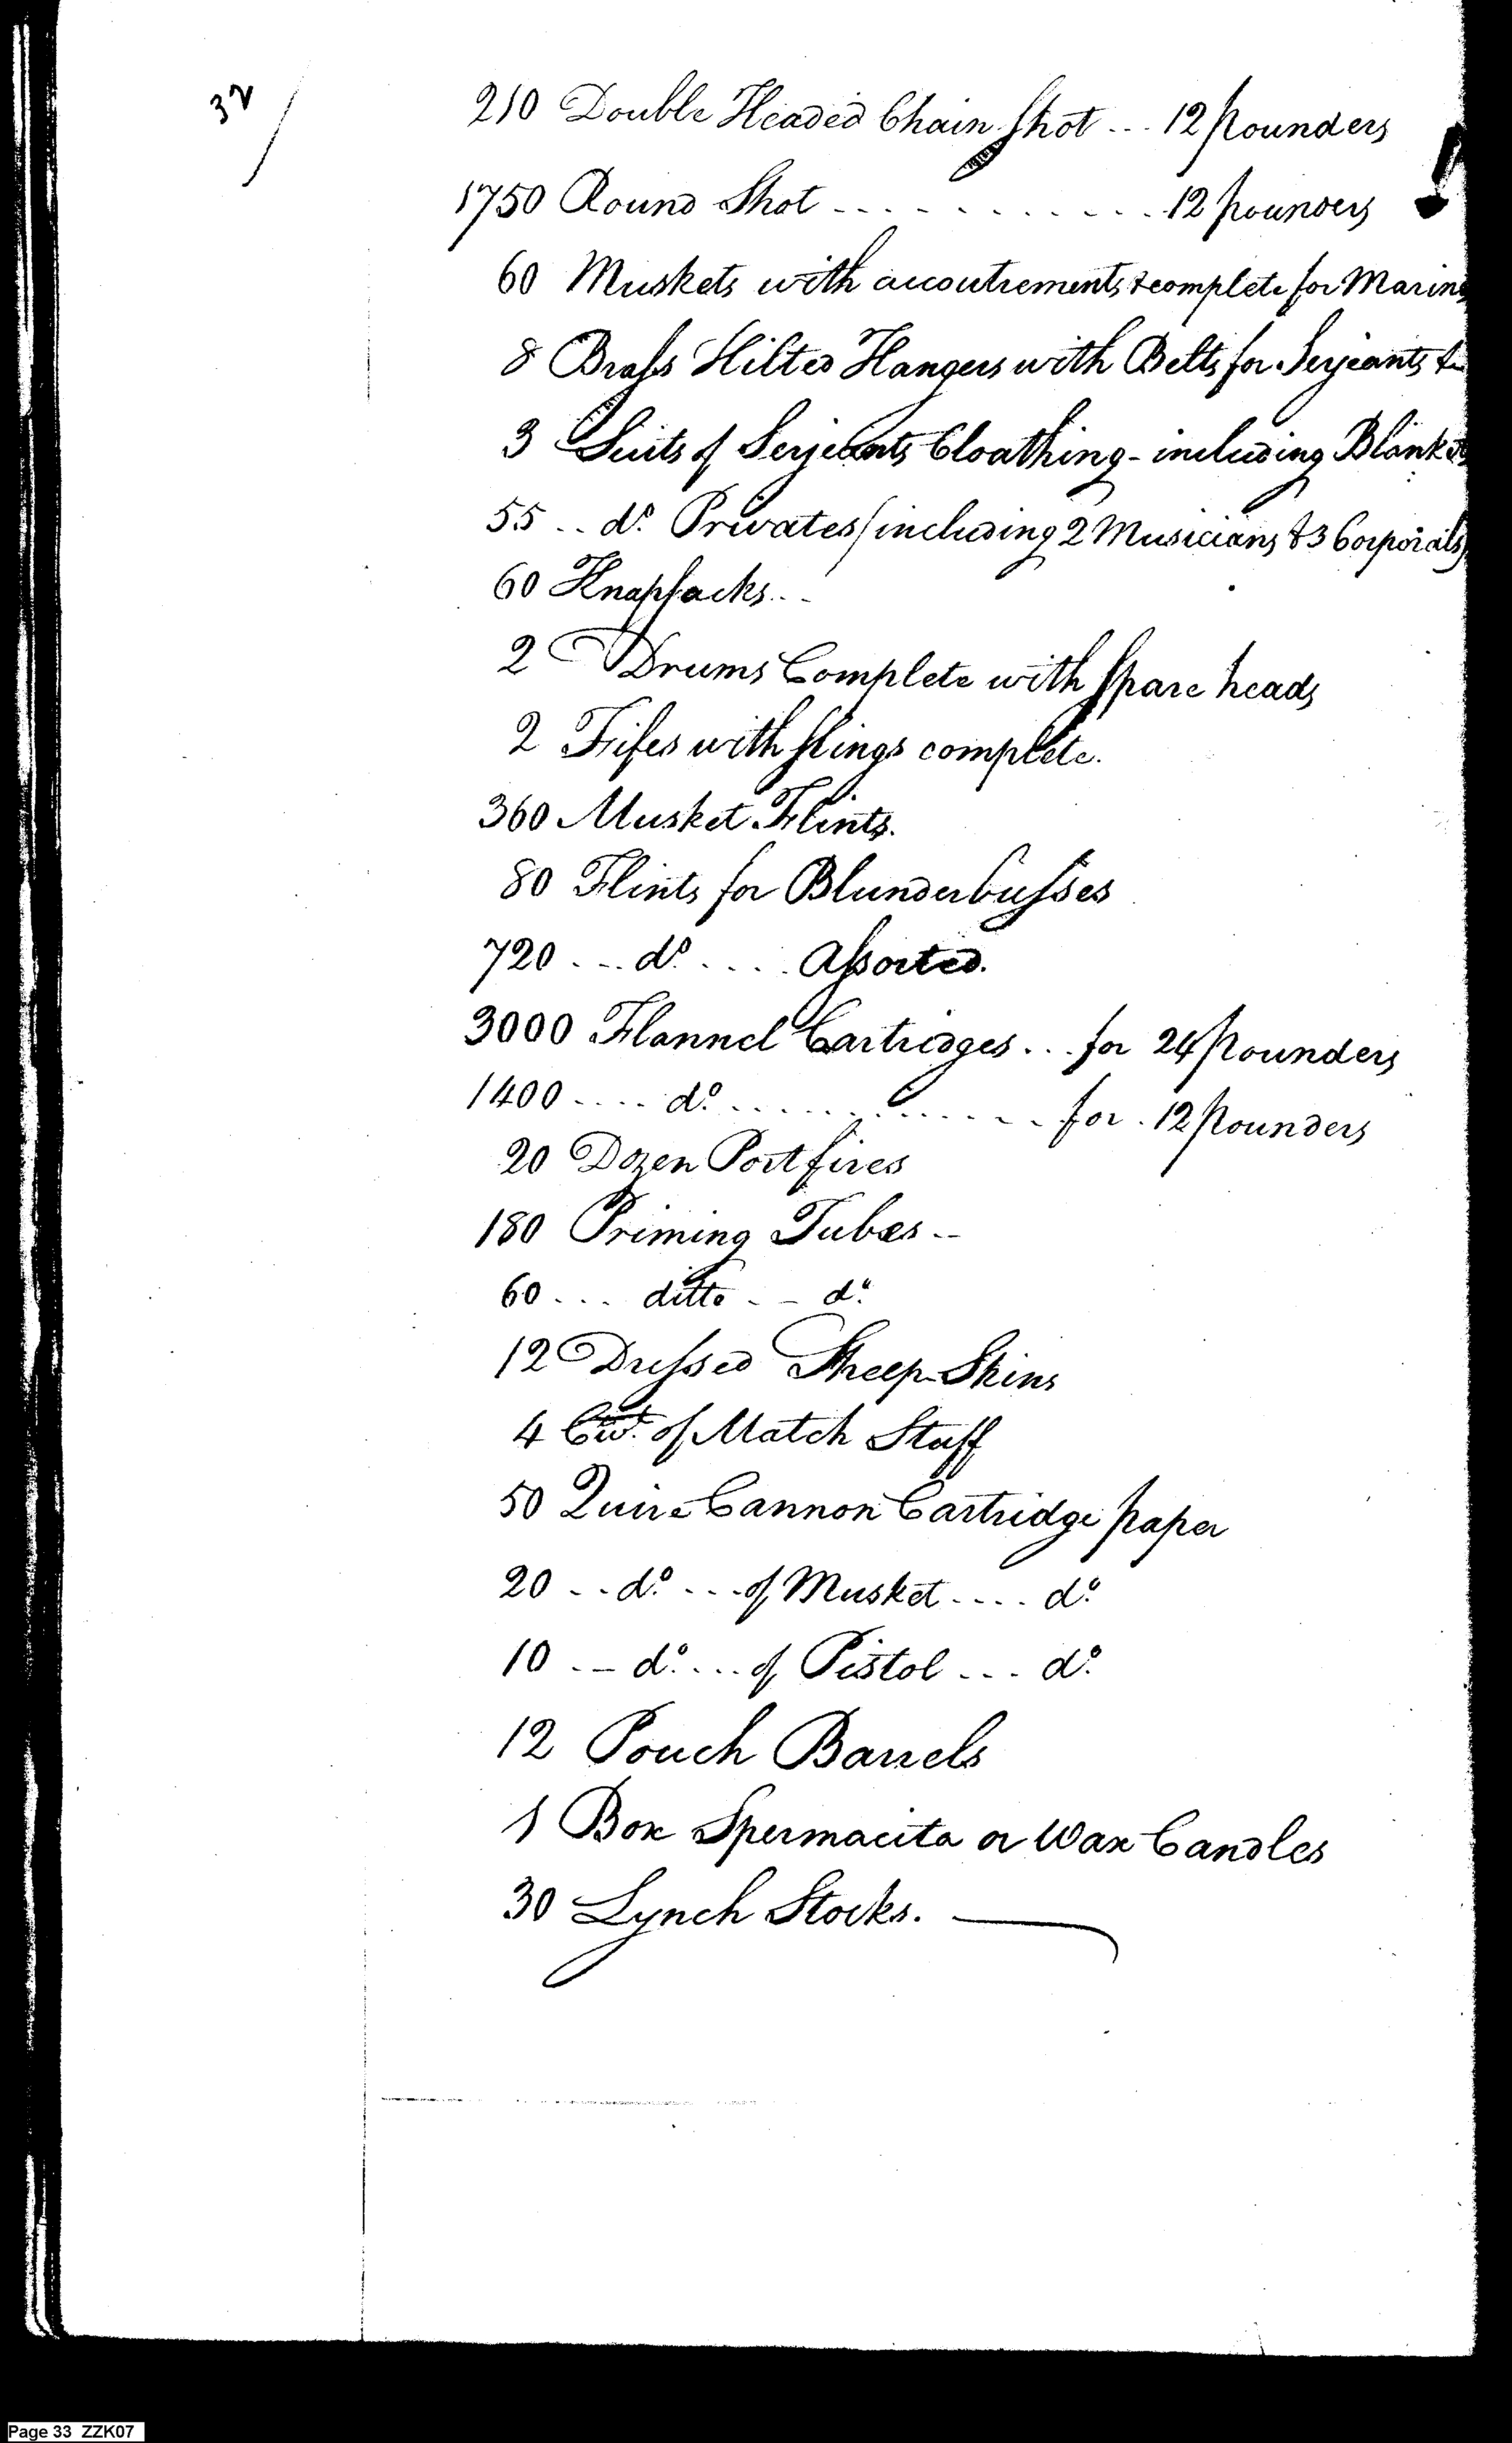 32/
210 Double Headed Chain Shot ... 12 pounders
1750 Round Shot ............ 12 pounders
60 Muskets with accoutrements & complete for Marines
8 Brass Hilted Hangers with Belts for Serjeants &c
3 Suits of Serjeants Cloathing - including Blankets
55 .. do. Privates (including 2 Musicians & 3 Corporals)
60 Knapsacks...
2 Drums Complete with spare heads
2 Fifes with slings complete.
360 Musket Flints.
80 Flints for Blunderbusses
720 ... do. .... Assorted.
3000 Flannel Cartridges ... for 24 pounders
1400 .... do. .............. for 12 pounders
20 Dozen Portfires
180 Priming Tubes --
60 ... ditto -- do.
12 Dressed Sheep-Skins
4 Cwt. of Match Stuff
50 Quire Cannon Cartridge paper
20 .. do. ... of Musket .... do.
10 .. do. ... of Pistol ... do.
12 Pouch Barrels
1 Box Spermacita or Wax Candles
30 Lynch Stocks. ——
Page 33 ZZK07